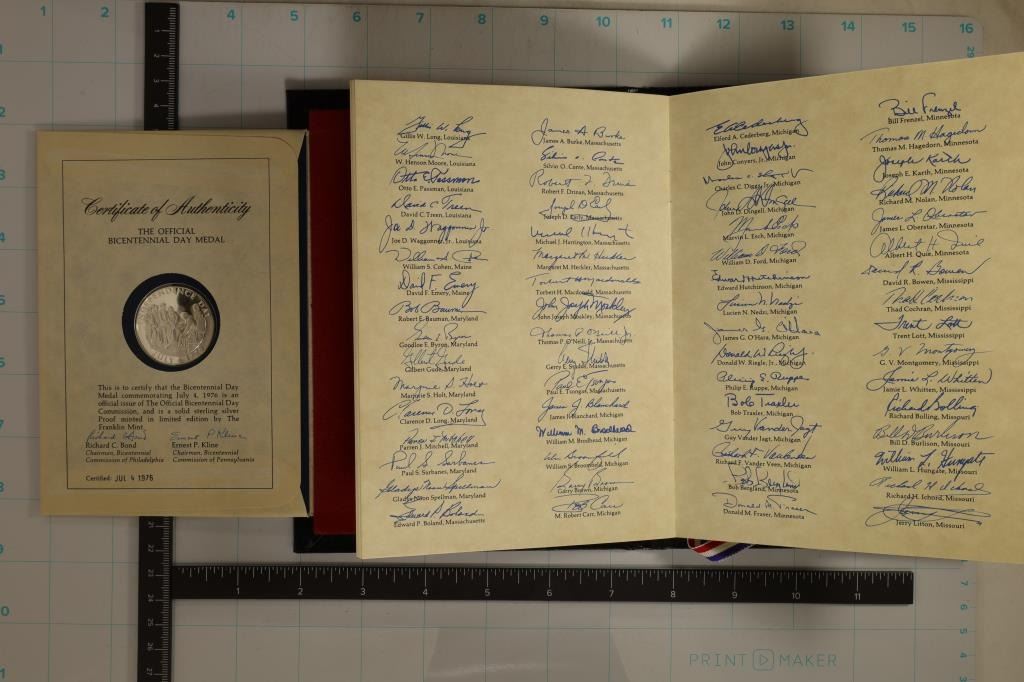 Certificate of Authenticity
THE OFFICIAL
BICENTENNIAL DAY MEDAL
This is to certify that the Bicentennial Day
Medal commemorating July 4, 1976 is an
official issue of The Official Bicentennial Day
Commission, and is a solid sterling silver
Proof minted in limited edition by The
Franklin Mint.
Richard C. Bond
Chairman, Bicentennial
Commission of Philadelphia
Ernest P. Kline
Chairman, Bicentennial
Commission of Pennsylvania
Certified: JUL 4 1976
Gillis W. Long, Louisiana
W. Henson Moore, Louisiana
Otto E. Passman, Louisiana
David C. Treen, Louisiana
Joe D. Waggonner, Jr., Louisiana
William S. Cohen, Maine
David F. Emery, Maine
Robert E. Bauman, Maryland
Goodloe E. Byron, Maryland
Gilbert Gude, Maryland
Marjorie S. Holt, Maryland
Clarence D. Long, Maryland
Parren J. Mitchell, Maryland
Paul S. Sarbanes, Maryland
Gladys Noon Spellman, Maryland
Edward P. Boland, Massachusetts
James A. Burke, Massachusetts
Silvio O. Conte, Massachusetts
Robert F. Drinan, Massachusetts
Joseph D. Early, Massachusetts
Michael J. Harrington, Massachusetts
Margaret M. Heckler, Massachusetts
Torbert H. Macdonald, Massachusetts
John Joseph Moakley, Massachusetts
Thomas P. O'Neill, Jr., Massachusetts
Gerry E. Studds, Massachusetts
Paul E. Tsongas, Massachusetts
James J. Blanchard, Michigan
William M. Brodhead, Michigan
William S. Broomfield, Michigan
Garry Brown, Michigan
M. Robert Carr, Michigan
Elford A. Cederberg, Michigan
John Conyers, Jr., Michigan
Charles C. Diggs, Jr., Michigan
John D. Dingell, Michigan
Marvin L. Esch, Michigan
William D. Ford, Michigan
Edward Hutchinson, Michigan
Lucien N. Nedzi, Michigan
James G. O'Hara, Michigan
Donald W. Riegle, Jr., Michigan
Philip E. Ruppe, Michigan
Bob Traxler, Michigan
Guy Vander Jagt, Michigan
Richard F. Vander Veen, Michigan
Bob Bergland, Minnesota
Donald M. Fraser, Minnesota
Bill Frenzel, Minnesota
Thomas M. Hagedorn, Minnesota
Joseph E. Karth, Minnesota
Richard M. Nolan, Minnesota
James L. Oberstar, Minnesota
Albert H. Quie, Minnesota
David R. Bowen, Mississippi
Thad Cochran, Mississippi
Trent Lott, Mississippi
G. V. Montgomery, Mississippi
Jamie L. Whitten, Mississippi
Richard Bolling, Missouri
Bill D. Burlison, Missouri
William L. Hungate, Missouri
Richard H. Ichord, Missouri
Jerry Litton, Missouri
PRINT MAKER